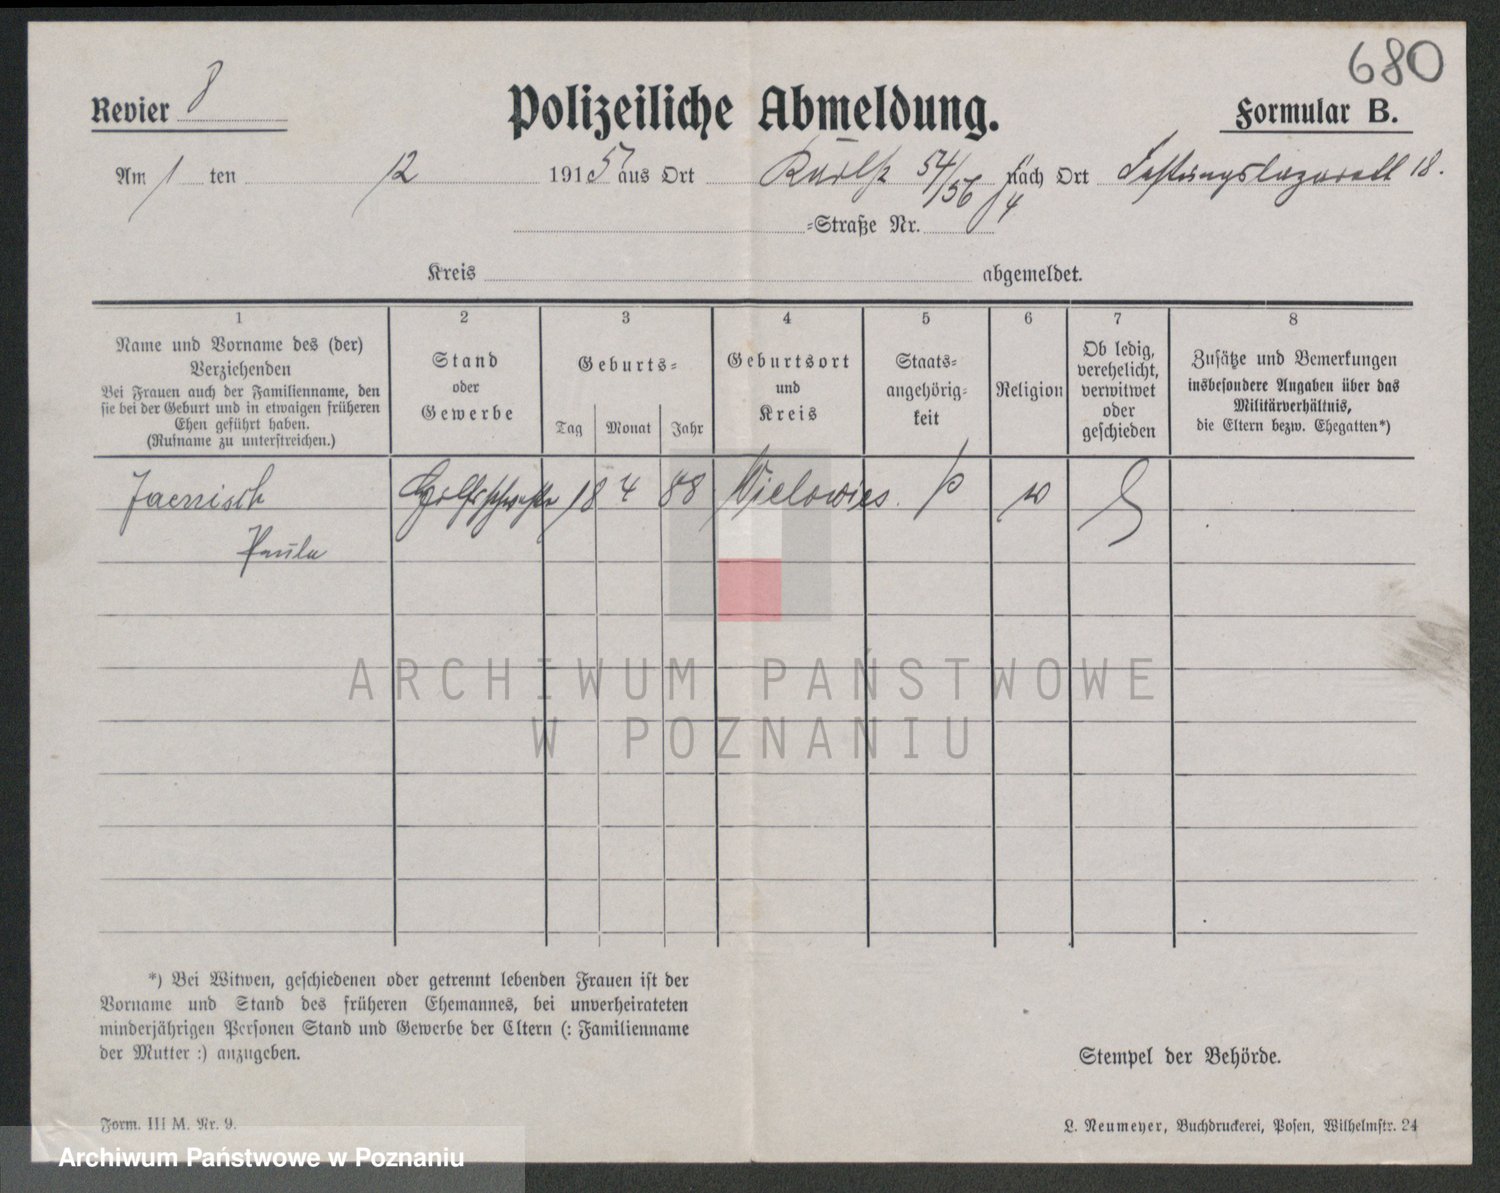 680
Revier 8
Polizeiliche Abmeldung.
Formular B.
Am 1 ten 12 1915 aus Ort 54/56 nach Ort Festungslazarett 18.
4
=Straße Nr.
Kreis abgemeldet.
1 2 3 4 5 6 7 8
Name und Vorname des (der)
Verziehenden
Bei Frauen auch der Familienname, den
sie bei der Geburt und in etwaigen früheren
Ehen geführt haben.
(Rufname zu unterstreichen.)
Stand
oder
Gewerbe
Geburts=
Tag Monat Jahr
Geburtsort
und
Kreis
Staats=
angehörig=
keit
Religion
Ob ledig,
verehelicht,
verwitwet
oder
geschieden
Zusätze und Bemerkungen
insbesondere Angaben über das
Militärverhältnis,
die Eltern bezw. Ehegatten*)
Jaenisch 18 4 88 Wielowies p w
Paula
ARCHIWUM PAŃSTWOWE
W POZNANIU
*) Bei Witwen, geschiedenen oder getrennt lebenden Frauen ist der
Vorname und Stand des früheren Ehemannes, bei unverheirateten
minderjährigen Personen Stand und Gewerbe der Eltern (: Familienname
der Mutter :) anzugeben.
Stempel der Behörde.
Form. III M. Nr. 9.
L. Neumeyer, Buchdruckerei, Posen, Wilhelmstr. 24
Archiwum Państwowe w Poznaniu